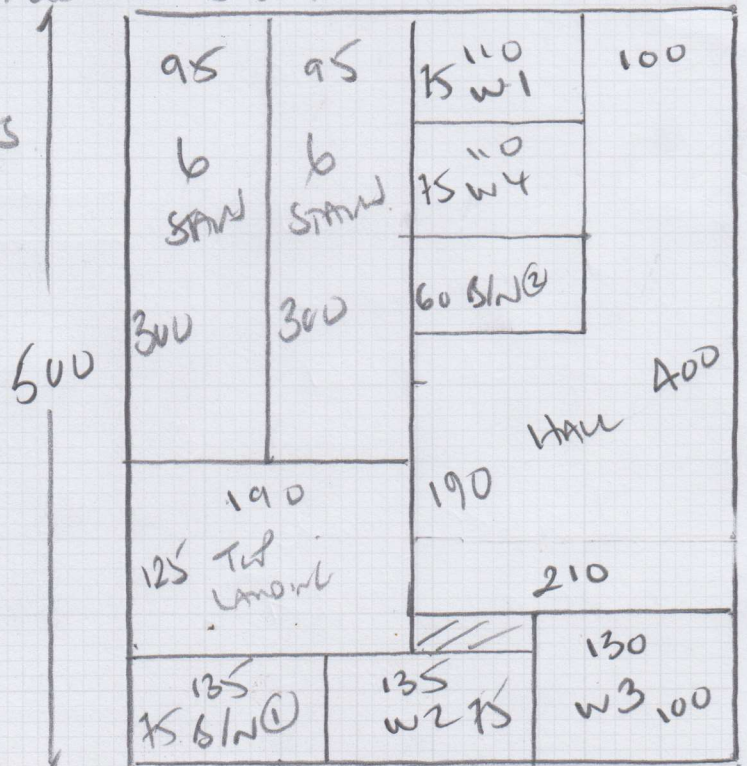 500
95
6
STAIR
300
95
6
STAIR
300
110
75 W1
110
75 W4
60 B/N②
100
400
HALL
190
210
190
125 TOP
LANDING
135
75 B/N①
135
W2 75
130
W3 100